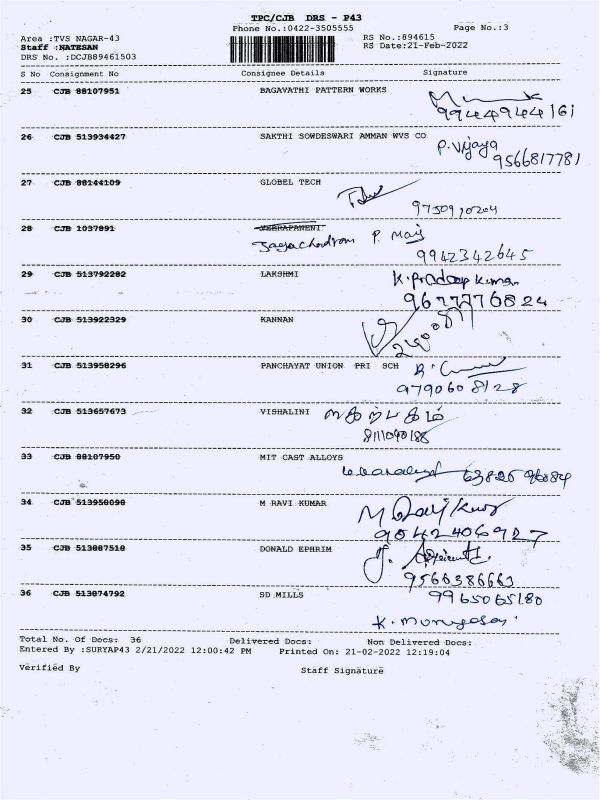 TPC/CJB DRS - P43
Phone No.:0422-3505555
Page No.:3
Area :TVS NAGAR-43
RS No.:894615
Staff :NATESAN
RS Date:21-Feb-2022
DRS No. :DCJB89461503
S No Consignment No Consignee Details Signature
25 CJB 88107951 BAGAVATHI PATTERN WORKS
9944944161
26 CJB 513934427 SAKTHI SOWDESWARI AMMAN WVS CO
P. Vijaya
9566817781
27 CJB 88144109 GLOBEL TECH
9750910204
28 CJB 1037891 VEERAPANENI
Jayachandran P.
9942342645
29 CJB 513792282 LAKSHMI
K. Pradeep Kumar
9677776824
30 CJB 513922329 KANNAN
31 CJB 513958296 PANCHAYAT UNION PRI SCH
9790608128
32 CJB 513657673 VISHALINI
8111040188
33 CJB 88107950 MIT CAST ALLOYS
34 CJB 513958098 M RAVI KUMAR
M Ravi Kumar
9842406927
35 CJB 513887518 DONALD EPHRIM
9566386663
36 CJB 513874792 SD MILLS
9965065180
K. Murugesan
Total No. Of Docs: 36 Delivered Docs: Non Delivered Docs:
Entered By :SURYAP43 2/21/2022 12:00:42 PM Printed On: 21-02-2022 12:19:04
Verified By Staff Signature